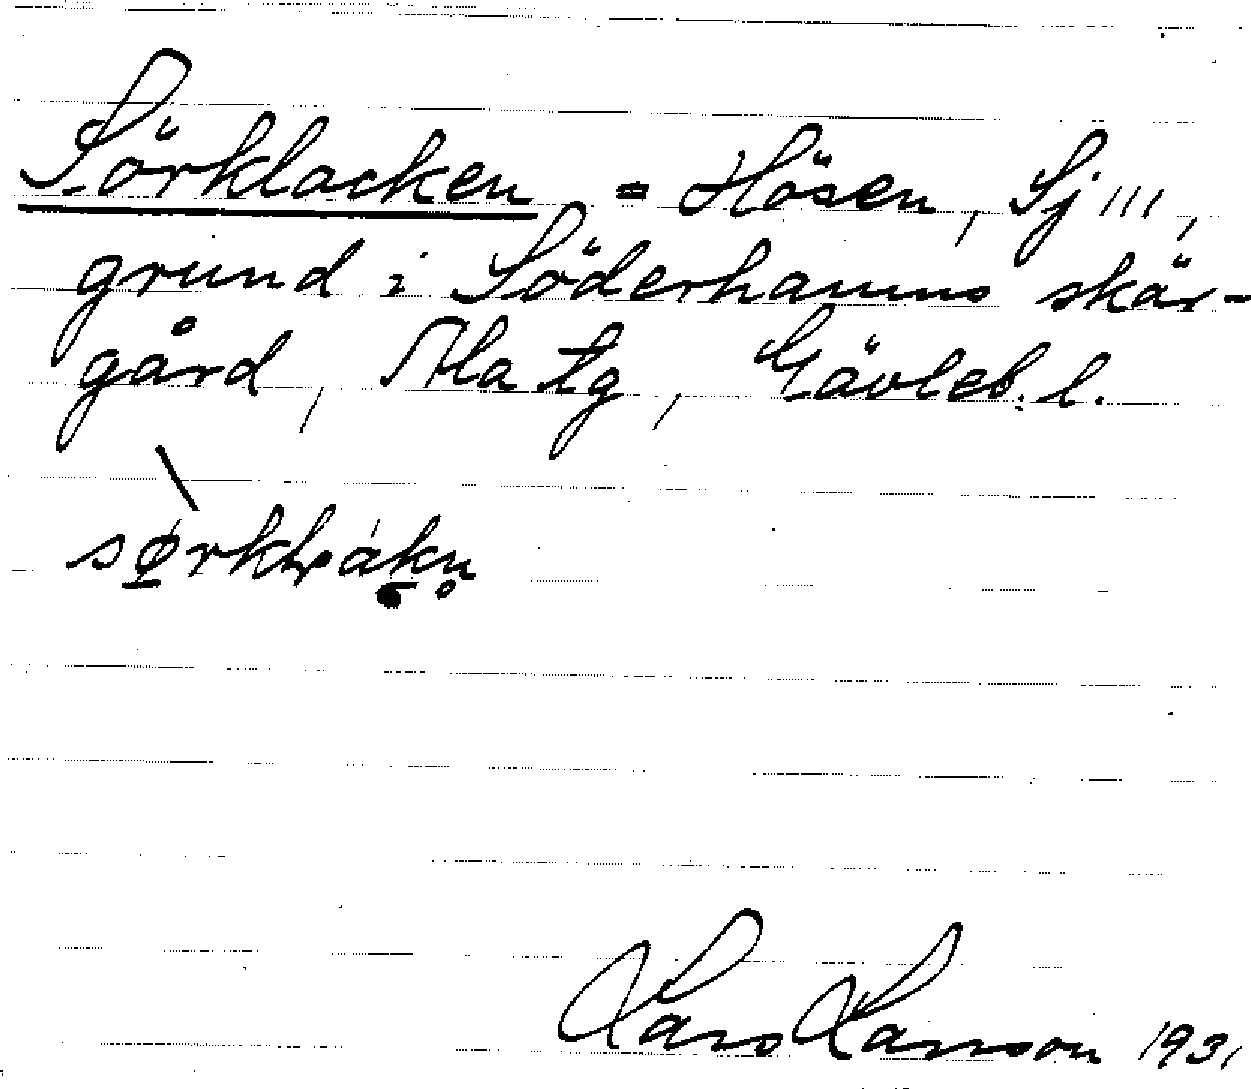 Sörklacken = Hösen, Sj III,
grund i Söderhamns skär-
gård, Ala tg, Gävleb. l.
Lars Larsson 1931